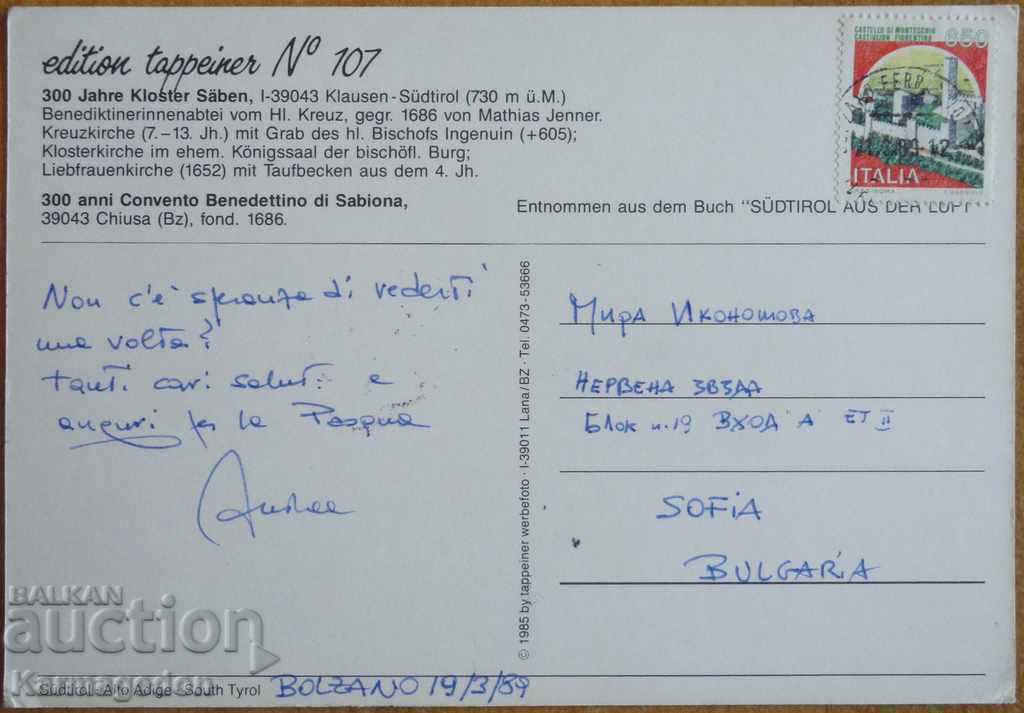 edition tappeiner Nº 107
300 Jahre Kloster Säben, I-39043 Klausen-Südtirol (730 m ü.M.)
Benediktinerinnenabtei vom Hl. Kreuz, gegr. 1686 von Mathias Jenner.
Kreuzkirche (7.–13. Jh.) mit Grab des hl. Bischofs Ingenuin (+605);
Klosterkirche im ehem. Königssaal der bischöfl. Burg;
Liebfrauenkirche (1652) mit Taufbecken aus dem 4. Jh.
300 anni Convento Benedettino di Sabiona,
39043 Chiusa (Bz), fond. 1686.
CASTELLO DI MONTECCHIO
CASTIGLION FIORENTINO
650
ITALIA
Entnommen aus dem Buch "SÜDTIROL AUS DER LUFT"
Non c'è speranza di vederti
una volta?
tanti cari saluti e
auguri per la Pasqua
Andrea
© 1985 by tappeiner werbefoto · I-39011 Lana/BZ · Tel. 0473-53666
Мира Икономова
НЕРВЕНА ЗВЗДА
Блок н.19 ВХОД "А" ЕТ II
SOFiA
BULGARiA
BALKAN
auction
Karmagedon
Südtirol · Alto Adige · South Tyrol
BOLZANO 19/3/89